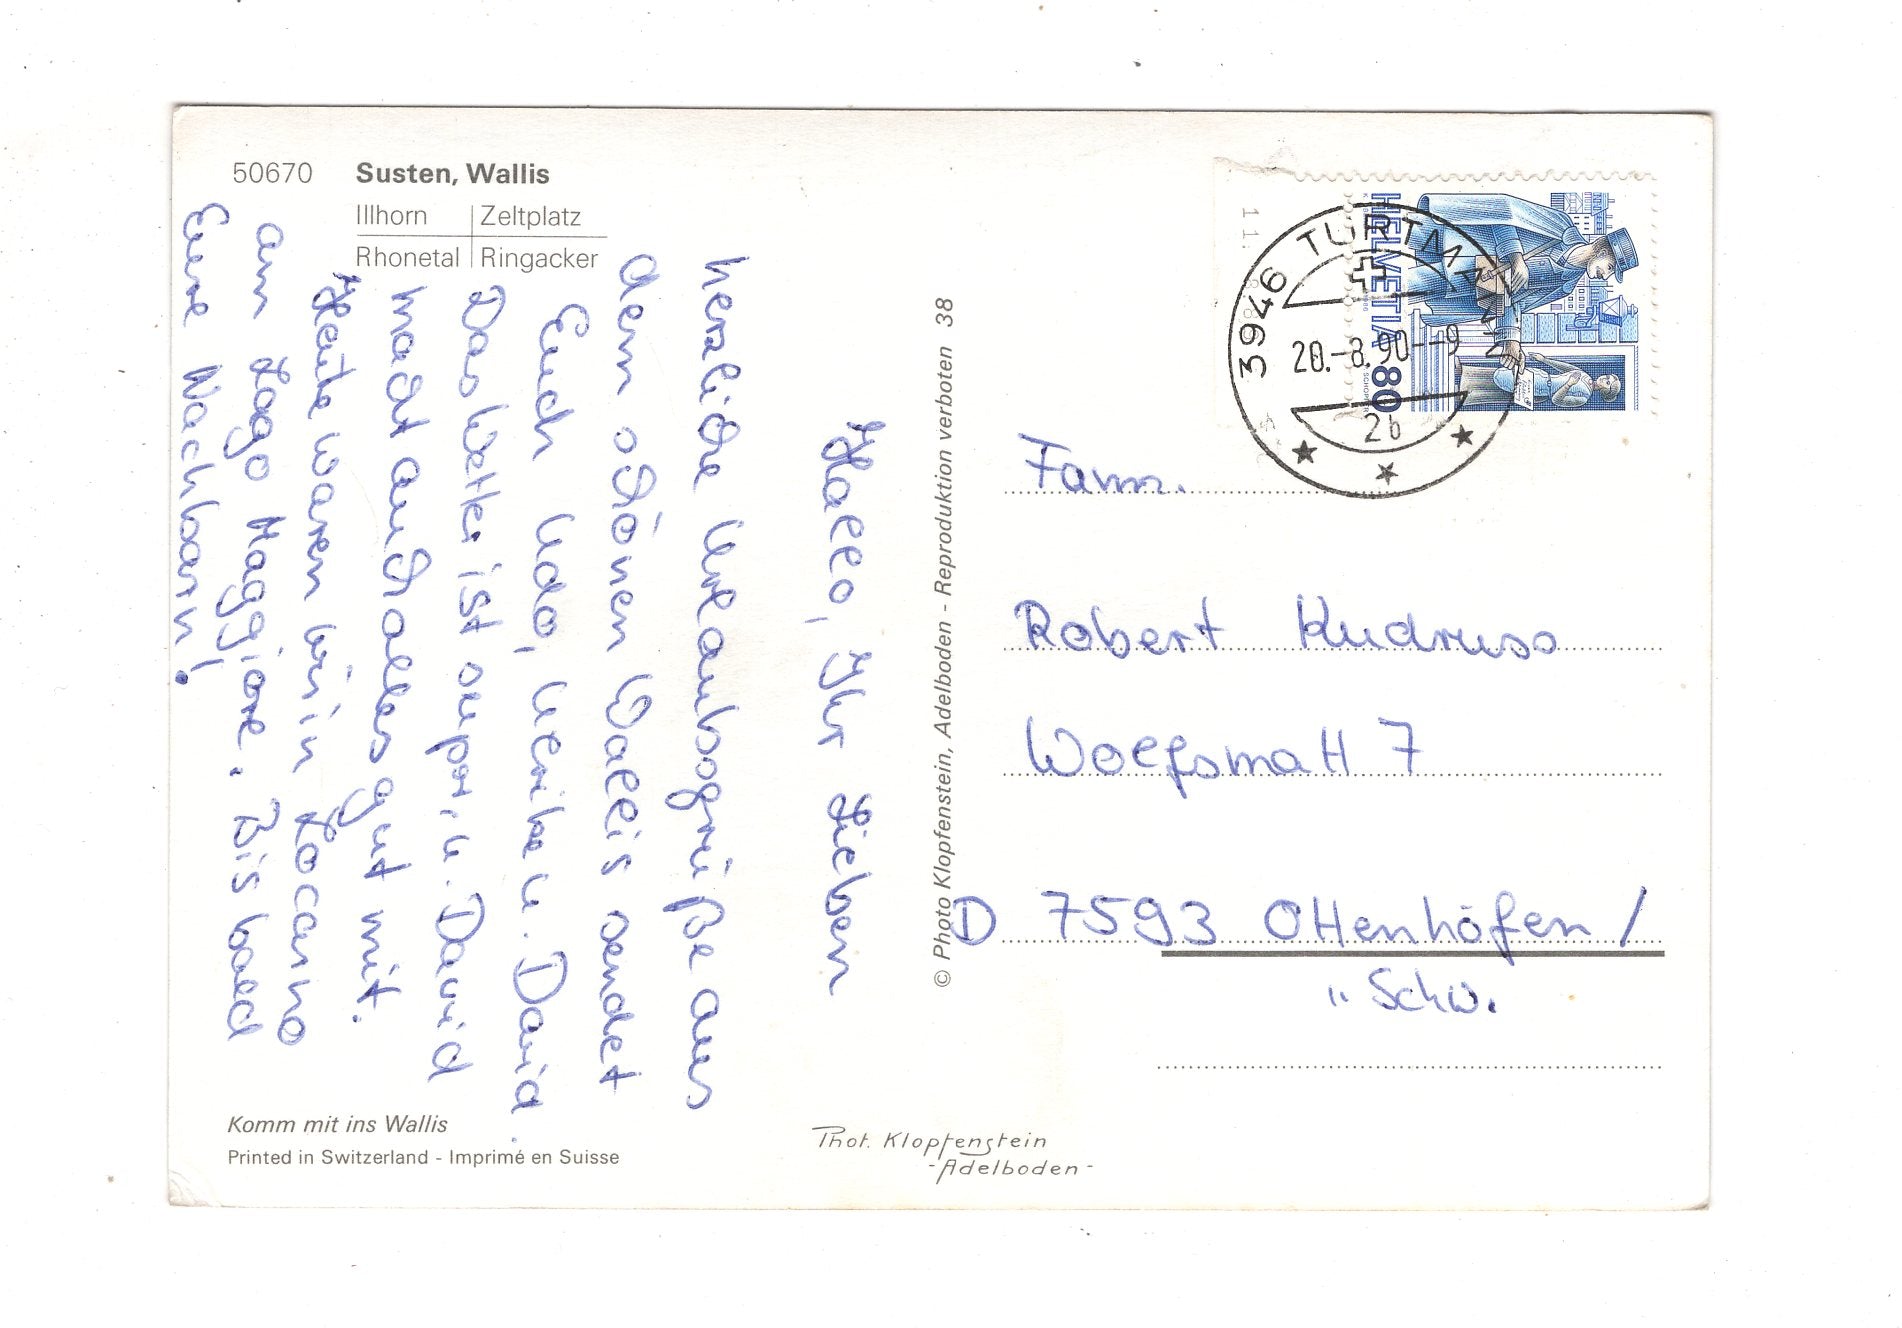 50670 Susten, Wallis
Illhorn Zeltplatz
Rhonetal Ringacker
Hallo, Ihr Lieben
herzliche Urlaubsgrüße aus
dem schönen Wallis sendet
Euch Udo, Ulrike u. David.
Das Wetter ist super, u. David
macht auch alles gut mit.
Heute waren wir in Locarno
am Lago Maggiore. Bis bald
Eure Nachbarn!
Komm mit ins Wallis
Printed in Switzerland - Imprimé en Suisse
© Photo Klopfenstein, Adelboden - Reproduktion verboten 38
Phot. Klopfenstein
-Adelboden-
HELVETIA 80
3946 TURTMANN
20.-8.90--9
2b
Fam.
Robert Kudruss
Wolfsmatt 7
D 7593 Ottenhöfen /
" Schw.